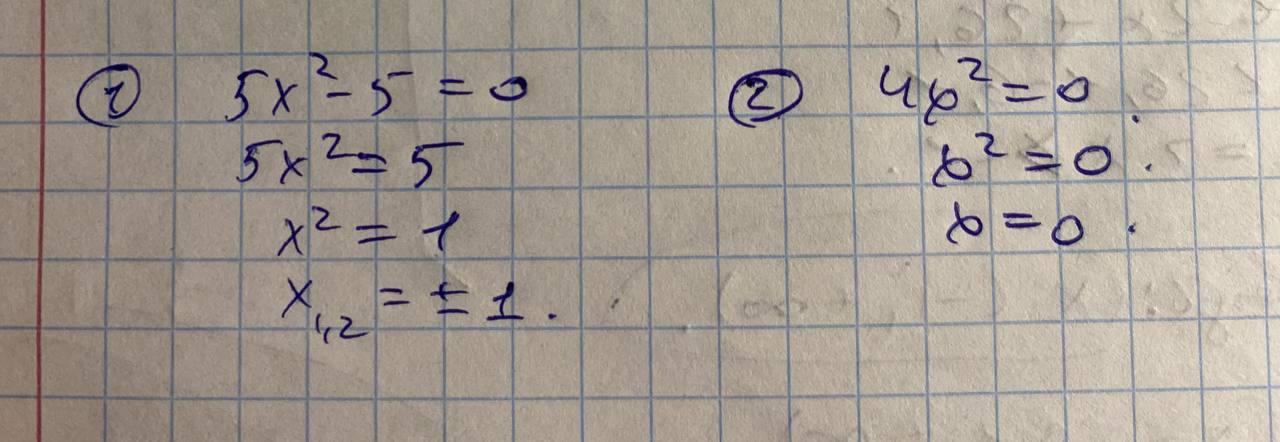 ① 5x² - 5 = 0
5x² = 5
x² = 1
x₁,₂ = ± 1.
② 4b² = 0.
b² = 0.
b = 0.